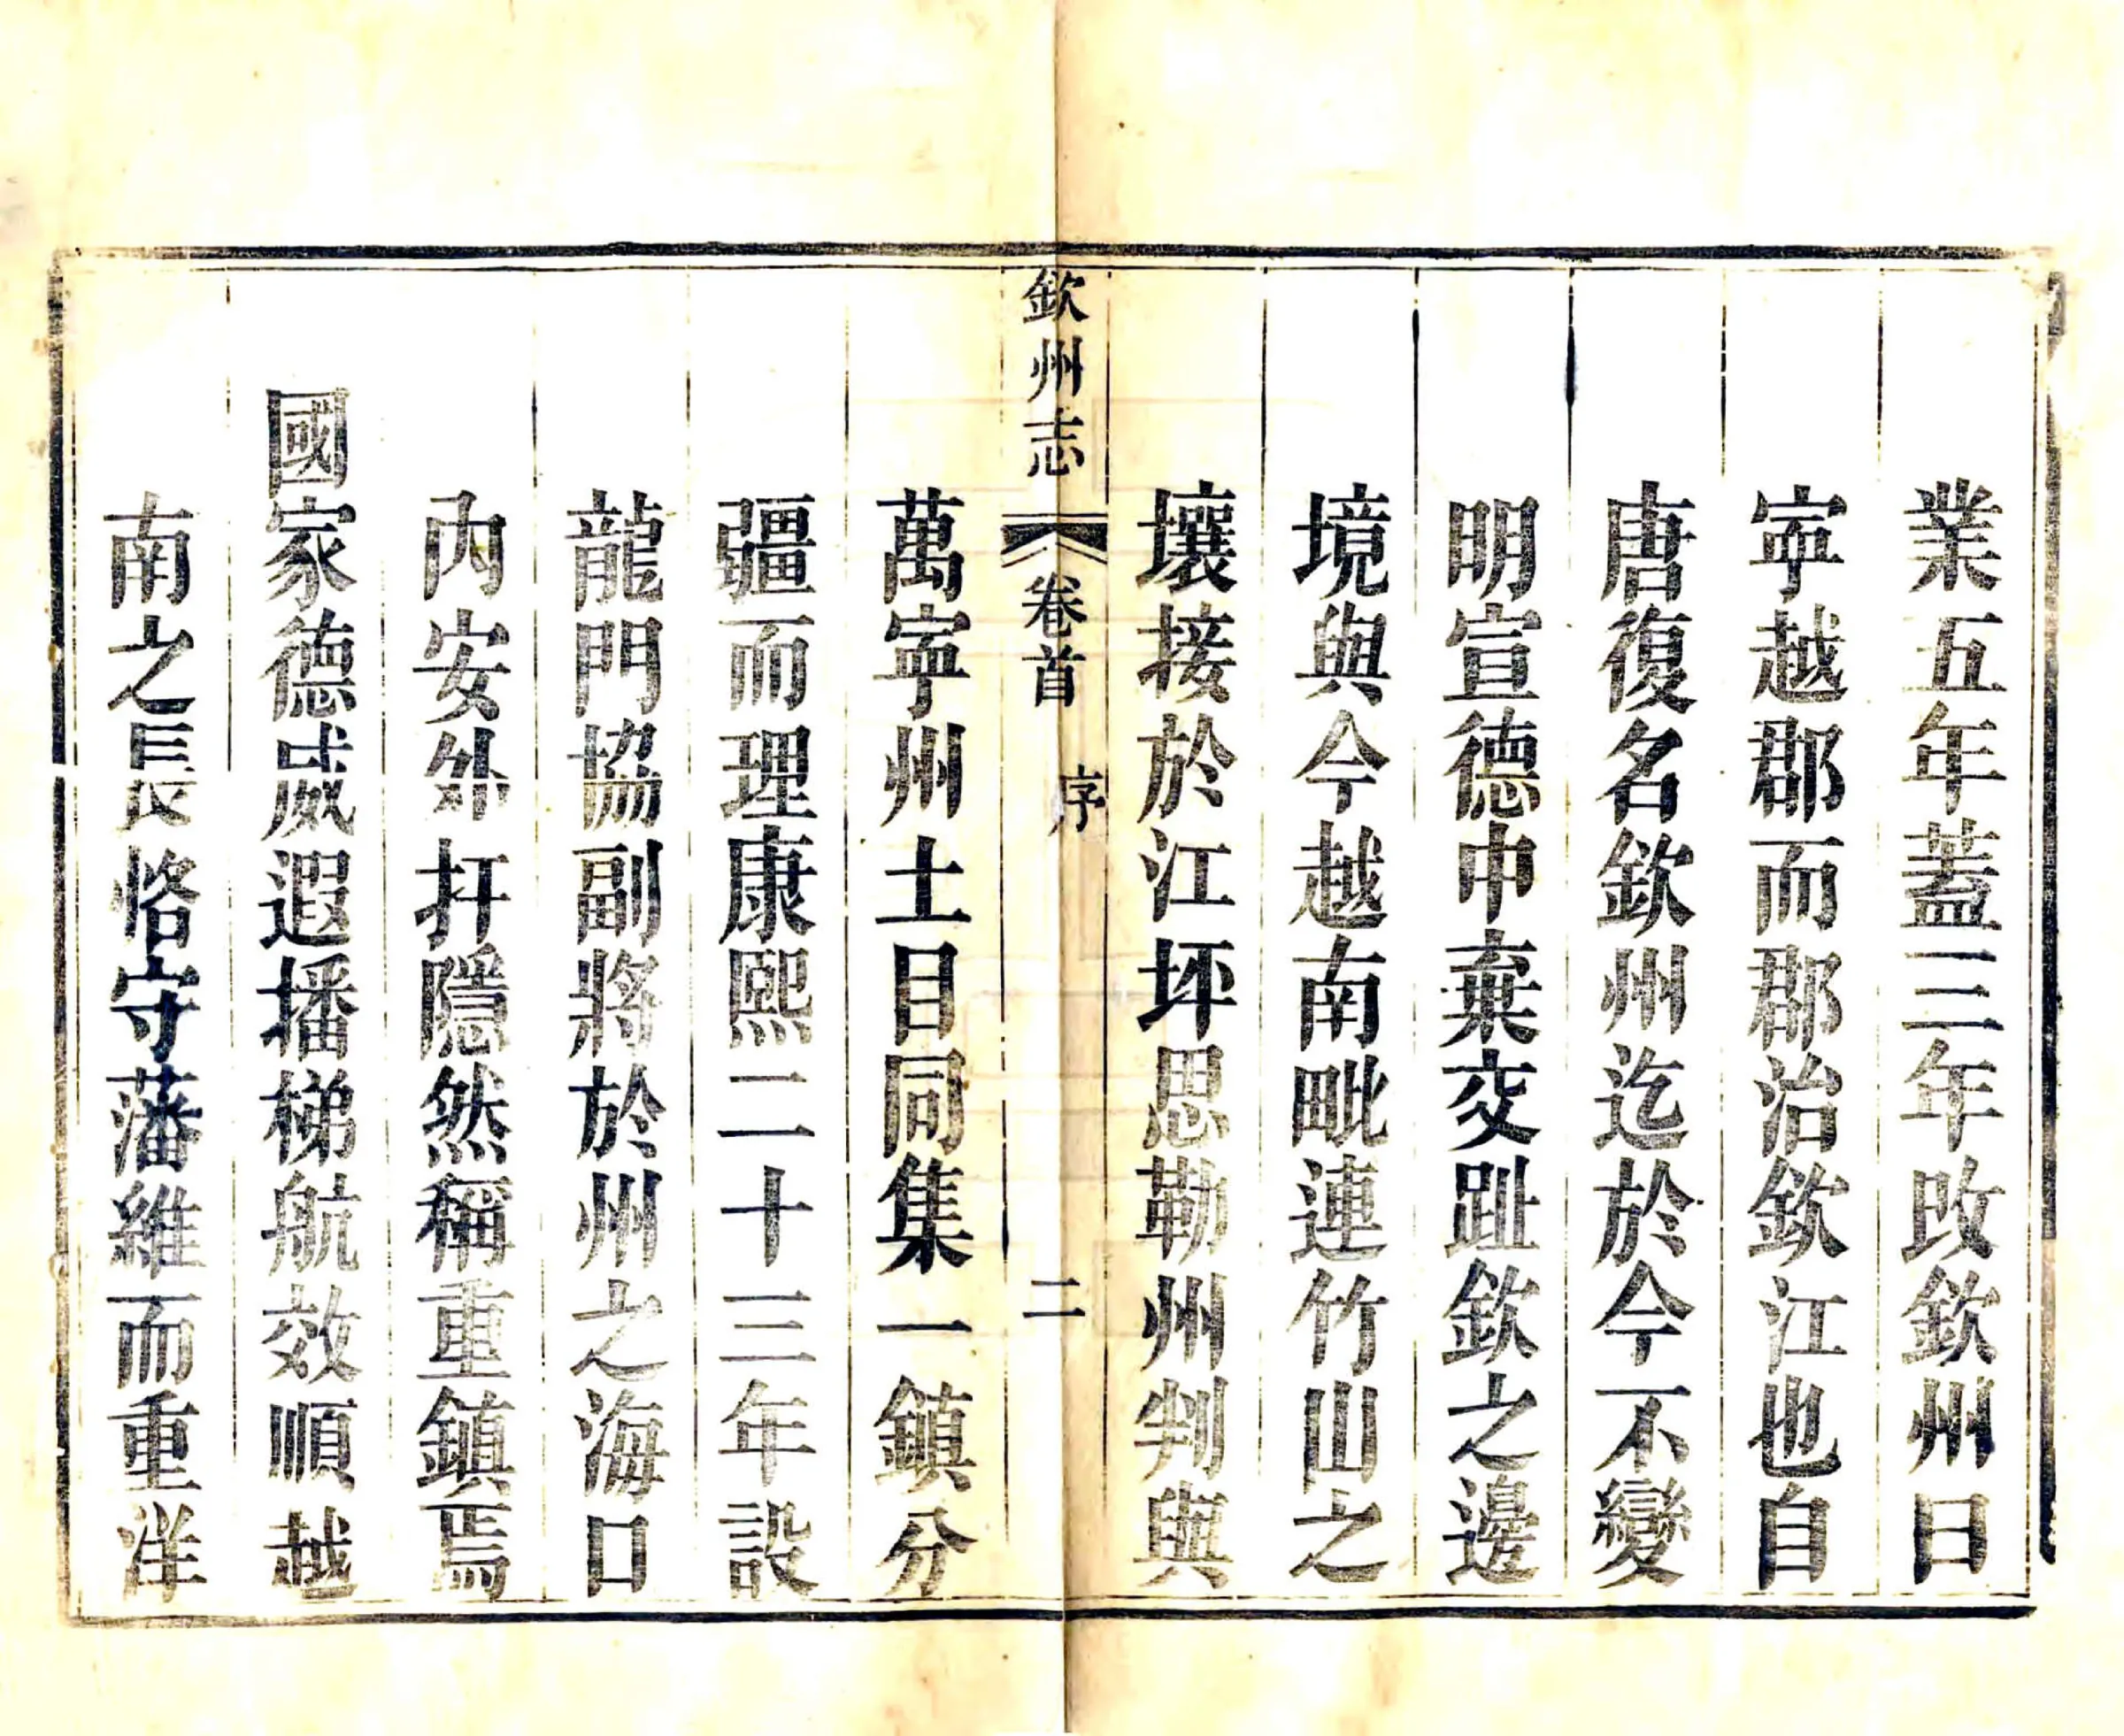 業五年蓋三年改欽州曰
寧越郡而郡治欽江也自
唐復名欽州迄於今不變
明宣德中棄交趾欽之邊
境與今越南毗連竹山之
壤接於江坪思勒州判與
欽州志 卷首 序 二
萬寧州土目同集一鎮分
疆而理康熙二十三年設
龍門協副將於州之海口
內安外扞隱然稱重鎮焉
國家德威遐播梯航效順越
南之長恪守藩維而重洋